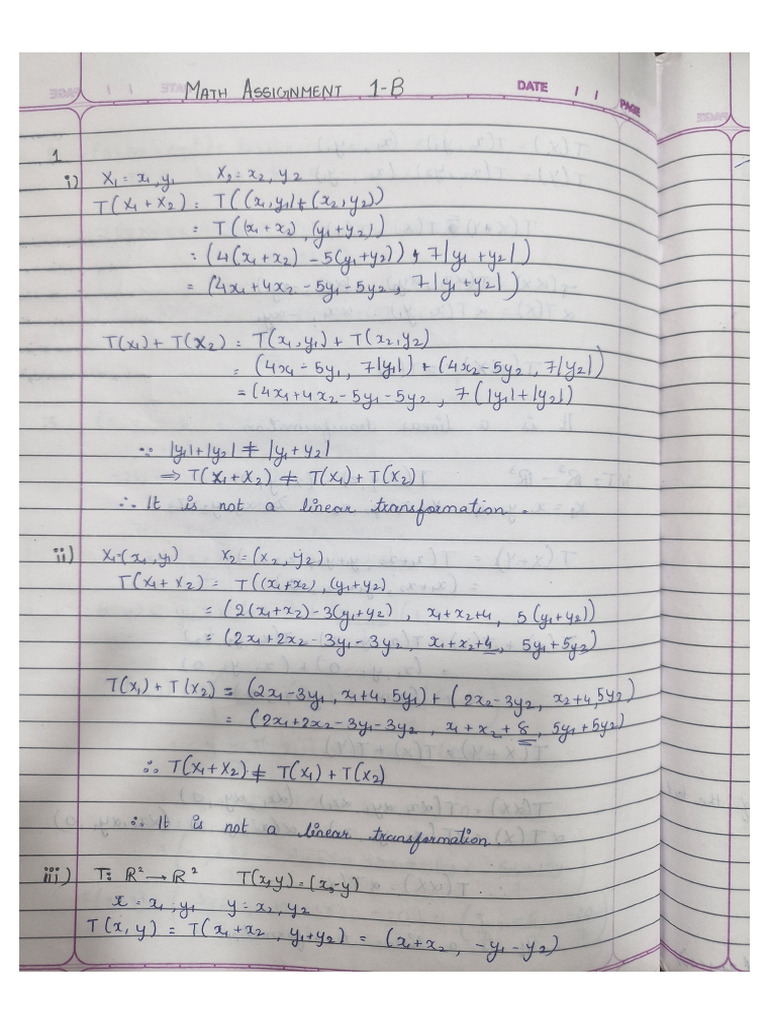 MATH ASSIGNMENT 1-B
DATE / /
PAGE
PAGE
PAGE
1
i) X₁ = x₁, y₁ X₂ = x₂, y₂
T(X₁ + X₂) = T((x₁, y₁) + (x₂, y₂))
= T((x₁ + x₂), (y₁ + y₂))
= (4(x₁ + x₂) - 5(y₁ + y₂)), 7|y₁ + y₂|)
= (4x₁ + 4x₂ - 5y₁ - 5y₂, 7|y₁ + y₂|)
T(x₁) + T(X₂) = T(x₁, y₁) + T(x₂, y₂)
= (4x₁ - 5y₁, 7|y₁|) + (4x₂ - 5y₂, 7|y₂|)
= (4x₁ + 4x₂ - 5y₁ - 5y₂, 7(|y₁| + |y₂|)
∵ |y₁| + |y₂| ≠ |y₁ + y₂|
⇒ T(X₁ + X₂) ≠ T(X₁) + T(X₂)
∴ It is not a linear transformation.
ii) X₁ = (x₁, y₁) X₂ = (x₂, y₂)
T(X₁ + X₂) = T((x₁ + x₂), (y₁ + y₂)
= (2(x₁ + x₂) - 3(y₁ + y₂), x₁ + x₂ + 4, 5(y₁ + y₂))
= (2x₁ + 2x₂ - 3y₁ - 3y₂, x₁ + x₂ + 4, 5y₁ + 5y₂)
T(X₁) + T(X₂) = (2x₁ - 3y₁, x₁ + 4, 5y₁) + (2x₂ - 3y₂, x₂ + 4, 5y₂)
= (2x₁ + 2x₂ - 3y₁ - 3y₂, x₁ + x₂ + 8, 5y₁ + 5y₂)
∴ T(X₁ + X₂) ≠ T(X₁) + T(X₂)
∴ It is not a linear transformation.
iii) T: ℝ² → ℝ² T(x, y) = (x, -y)
x = x₁, y₁ y = x₂, y₂
T(x, y) = T(x₁ + x₂, y₁ + y₂) = (x₁ + x₂, -y₁ - y₂)